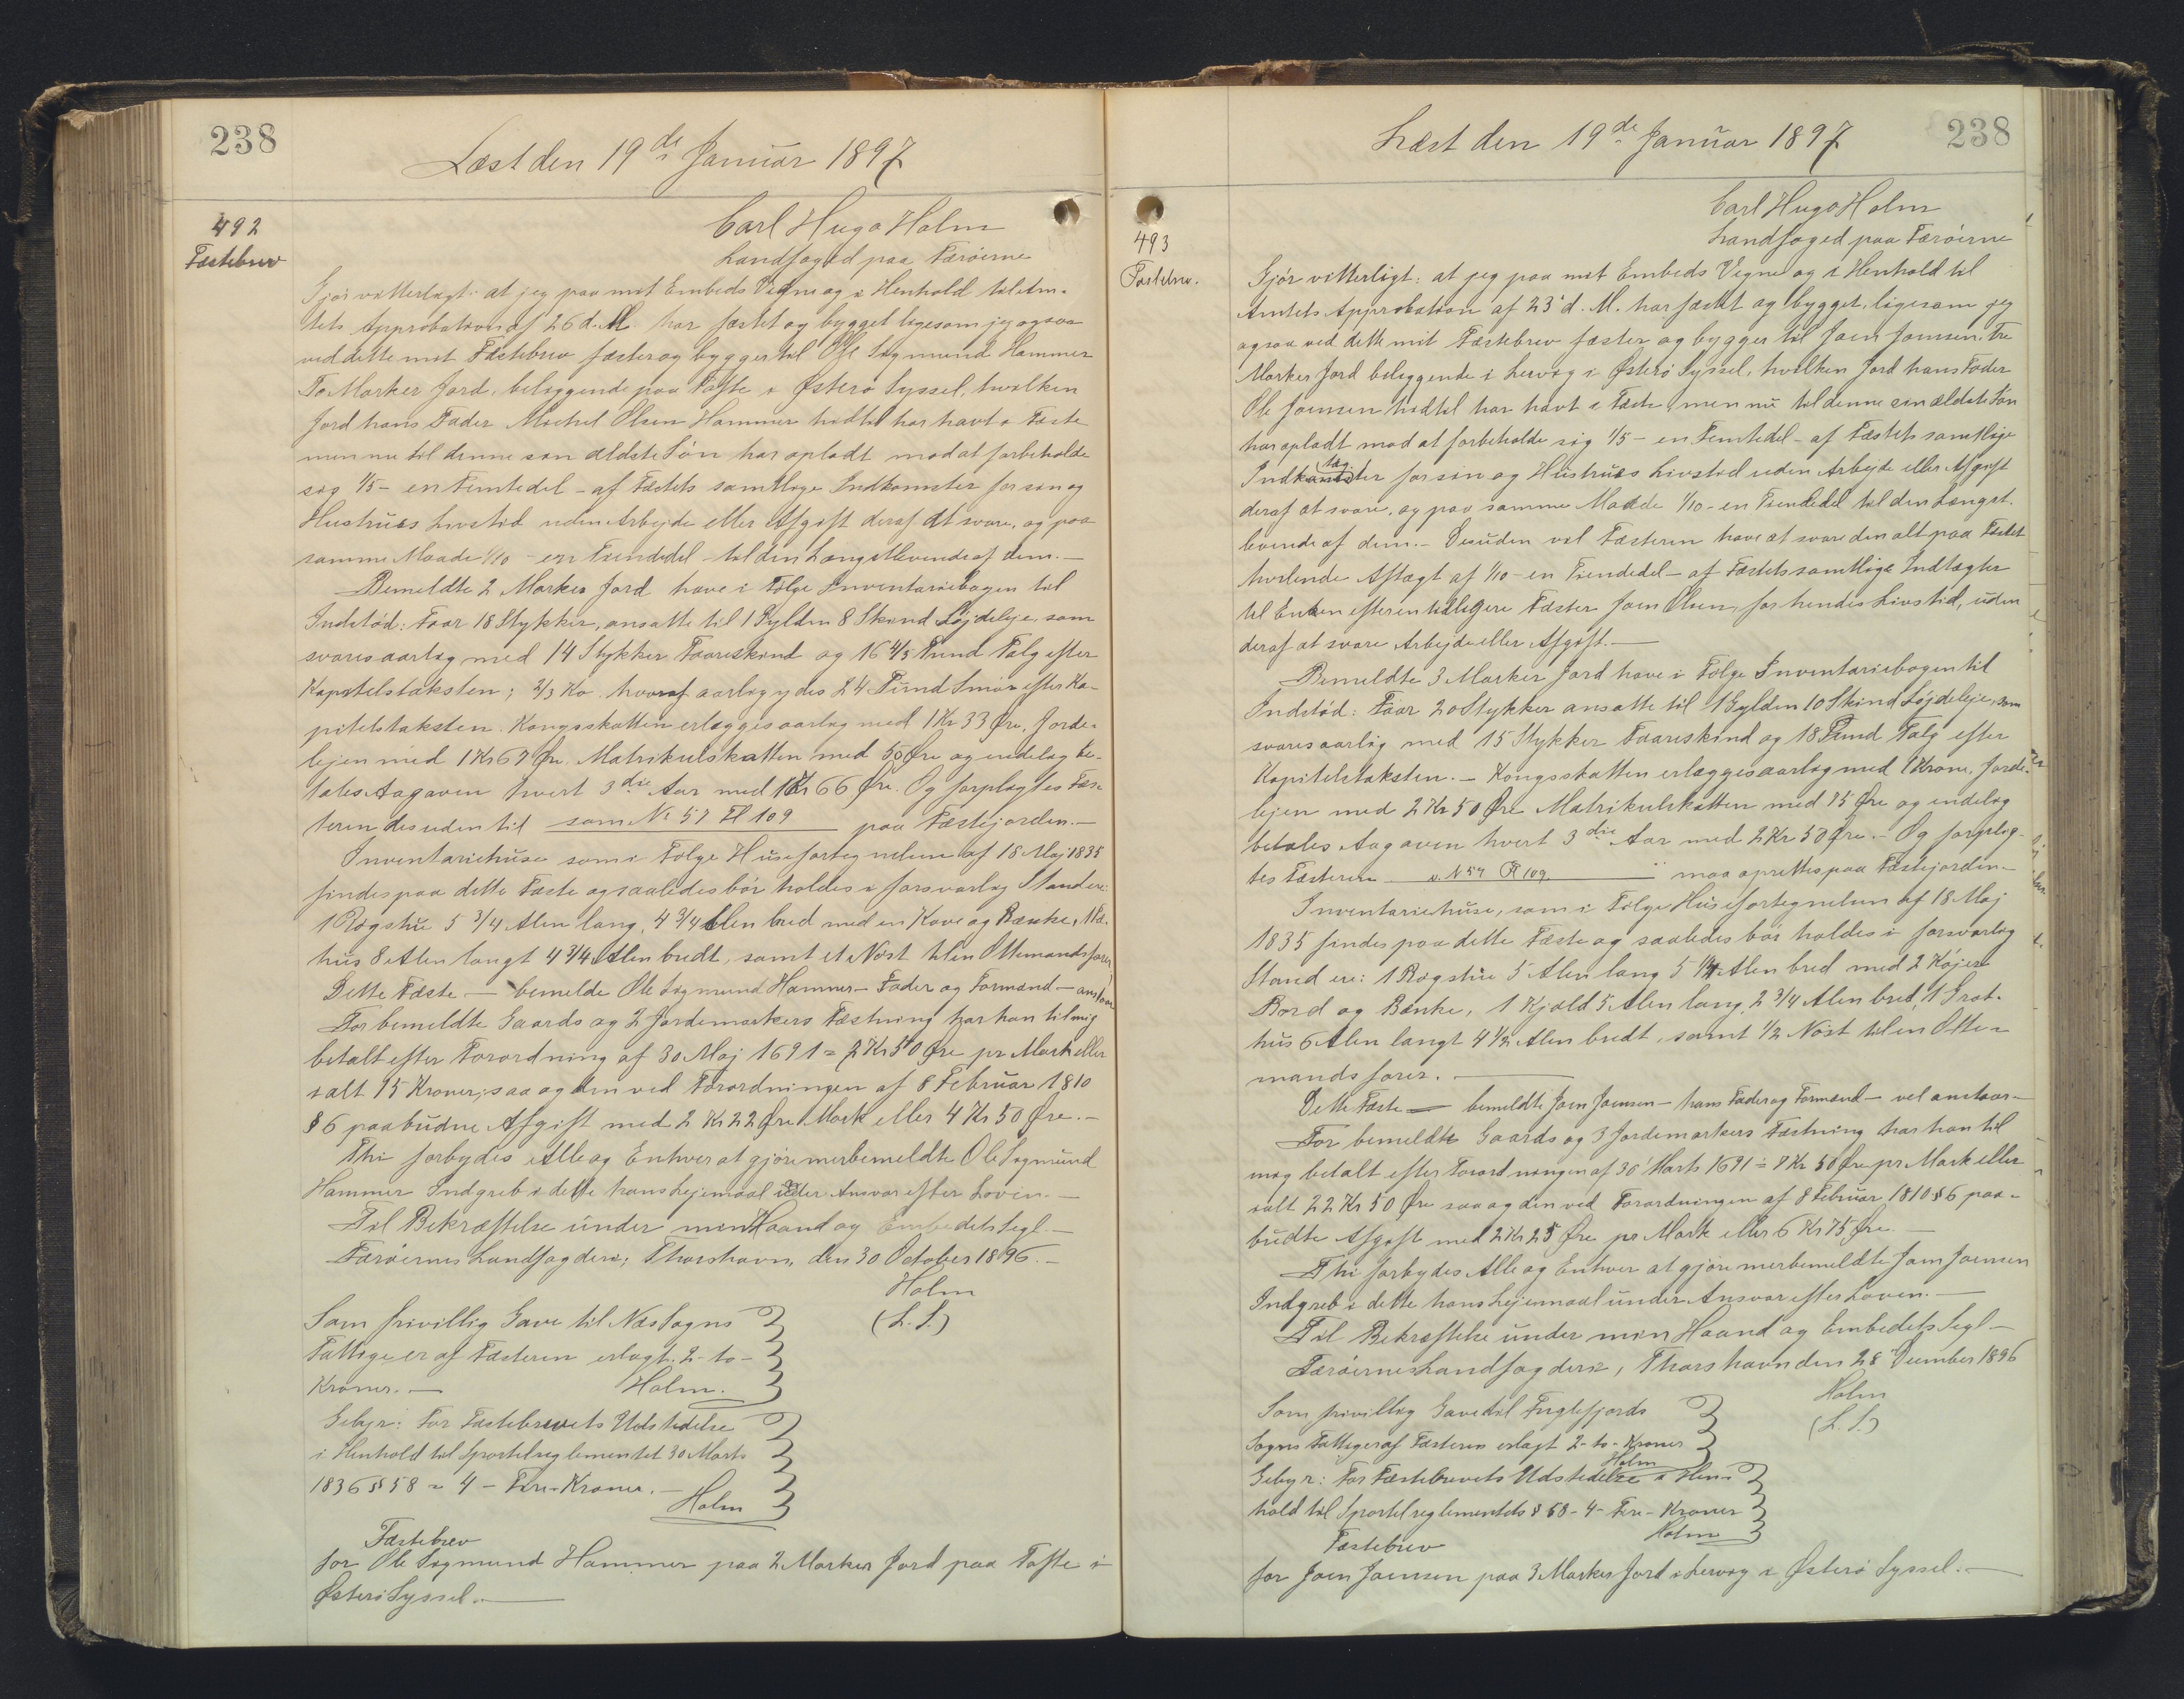 238
Læst den 19de Januar 1897
492
Fæstebrev
Carl Hugo Holm
Landfoged paa Færøerne
Gjør vitterligt: at jeg paa mit Embeds Vegne og i Henhold til Am-
tets Approbation af 26 d. M. har fæstet og bygget ligesom jeg ogsaa
ved dette mit Fæstebrev fæster og bygger til Ole Sigmund Hammer
To Marker Jord, beliggende paa Tofte i Østerø Syssel, hvilken
Jord hans Fader Michel Olsen Hammer hidtil har havt i Fæste
men nu til denne sin ældste Søn har opladt mod at forbeholde
sig 1/5 - en Femtedel - af Fæstets samtlige Indkomster for sin og
Hustrues Livstid uden Arbejde eller Afgift deraf at svare, og paa
samme Maade 1/10 - en Tiendedel - til den Længstlevende af dem. -
Bemeldte 2 Marker Jord have i Følge Inventariebogen til
Indstød: Faar 18 Stykker, ansatte til 1 Gylden 8 Skind Løjdeleje, som
svares aarlig med 14 Stykker Faareskind og 16 4/5 Pund Talg efter
Kapitelstaksten; 2/3 Ko hvoraf aarlig ydes 24 Pund Smør efter Ka-
pitelstaksten. Kongsskatten erlægges aarlig med 1 Kr 33 Øre, Jorde-
lejen med 1 Kr 67 Øre. Matrikulskatten med 50 Øre og endelig be-
tales Aagaven hvert 3die Aar med 1 Kr 66 Øre. Og forpligtes Fæs-
teren desuden til som No 57 Fl 109 paa Fæstejorden. -
Inventariehuse som i Følge Husefortegnelsen af 18 Maj 1835
findes paa dette Fæste og saaledes bør holdes i forsvarlig Stand ere:
1 Røgstue 5 3/4 Alen lang, 4 3/4 Alen bred med en Kove og Bænke, 1 Fæ-
hus 8 Alen langt 4 3/4 Alen bredt, samt et Nøst til en Ottemandsfarer
Dette Fæste — bemelde Ole Sigmund Hammer - Fader og Formand - anstaar
For bemeldte Gaards og 2 Jordemarkers Fæstning har han til mig
betalt efter Forordning af 30 Maj 1691 = 7 Kr 50 Øre pr Mark eller
ialt 15 Kroner; saa og den ved Forordningen af 8 Februar 1810
§ 6 paabudne Afgift med 2 Kr 22 Øre Mark eller 4 Kr 50 Øre. -
Thi forbydes Alle og Enhver at gjøre merbemeldte Ole Sigmund
Hammer Indgreb i dette hans Lejemaal under Ansvar efter Loven. -
Til Bekræftelse under min Haand og Embedets Segl. -
Færøernes Landfogderi, Thorshavn, den 30 October 1896. -
Holm
(L. S.)
Som frivillig Gave til Næs Sogns
Fattige er af Fæsteren erlagt 2 - to -
Kroner. — Holm.
Gebyr: For Fæstebrevets Udstedelse
i Henhold til Sportelreglementet 30 Marts
1836 § 58 = 4 - Fire - Kroner. -
Holm
Fæstebrev
for Ole Sigmund Hammer paa 2 Marker Jord paa Tofte i
Østerø Syssel. —
Læst den 19de Januar 1897
238
493
Fæstebrev.
Carl Hugo Holm
Landfoged paa Færøerne
Gjør vitterligt: at jeg paa mit Embeds Vegne og i Henhold til
Amtets Approbation af 23' d. M. har fæstet og bygget, ligesom jeg
ogsaa ved dette mit Fæstebrev fæster og bygger til Joen Joensen, Tre
Marker Jord beliggende i Lervig i Østerø Syssel, hvilken Jord hans Fader
Ole Joensen hidtil har havt i Fæste, men nu til denne sin ældste Søn
har opladt mod at forbeholde sig 1/5 - en Femtedel - af Fæstets samtlige
Indtægter for sin og Hustrues Livstid uden Arbejde eller Afgift
deraf at svare, og paa samme Maade 1/10 - en Tiendedel til den Længst-
levende af dem. - Desuden vil Fæsteren have at svare den alt paa Fæstet
hvilende Aftægt af 1/10 - en Tiendedel - af Fæstets samtlige Indtægter
til Enken efter en tidligere Fæster Joen Olsen, for hendes Livstid, uden
deraf at svare Arbejde eller Afgift. —
Bemeldte 3 Marker Jord have i Følge Inventariebogen til
Indstød: Faar 20 Stykker ansatte til 1 Gylden 10 Skind Løjdeleje, som
svares aarlig med 15 Stykker Faareskind og 18 Pund Talg efter
Kapitelstaksten. - Kongsskatten erlægges aarlig med 1 Krone, Jorde-
lejen med 2 Kr 50 Øre Matrikulskatten med 75 Øre og endelig
betales Aagaven hvert 3die Aar med 2 Kr 50 Øre. - Og forplig-
tes Fæsteren s. N 57 Fl 109 maa oprettes paa Fæstejorden. -
Inventariehuse, som i Følge Husefortegnelsen af 18 Maj
1835 findes paa dette Fæste og saaledes bør holdes i forsvarlig
Stand ere: 1 Røgstue 5 Alen lang 5 1/4 Alen bred med 2 Køjer
Bord og Bænke, 1 Hjald 5 Alen lang, 2 3/4 Alen bred, 1 Grot-
hus 6 Alen langt 4 1/2 Alen bredt, samt 1/2 Nøst til en Otte-
mandsfarer. —
Dette Fæste — bemeldte Joen Joensen - hans Fader og Formand - vel anstaar -
For bemeldte Gaards og 3 Jordemarkers Fæstning har han til
mig betalt efter Forordningen af 30' Marts 1691 = 7 Kr 50 Øre pr Mark eller
ialt 22 Kr 50 Øre saa og den ved Forordningen af 8 Februar 1810 § 6 paa-
budte Afgift med 2 Kr 25 Øre pr Mark eller 6 Kr 75 Øre. —
Thi forbydes Alle og Enhver at gjøre merbemeldte Joen Joensen
Indgreb i dette hans Lejemaal under Ansvar efter Loven. —
Til Bekræftelse under min Haand og Embedets Segl -
Færøernes Landfogderi, Thorshavn den 28 December 1896
Holm
(L. S.)
Som frivillig Gave til Fuglefjords
Sogns Fattige er af Fæsteren erlagt 2 - to - Kroner
Holm
Gebyr: For Fæstebrevets Udstedelse i Hen-
hold til Sportelreglementets § 58 - 4 - Fire - Kroner
Holm
Fæstebrev
for Joen Joensen paa 3 Marker Jord i Lervig i Østerø Syssel. —